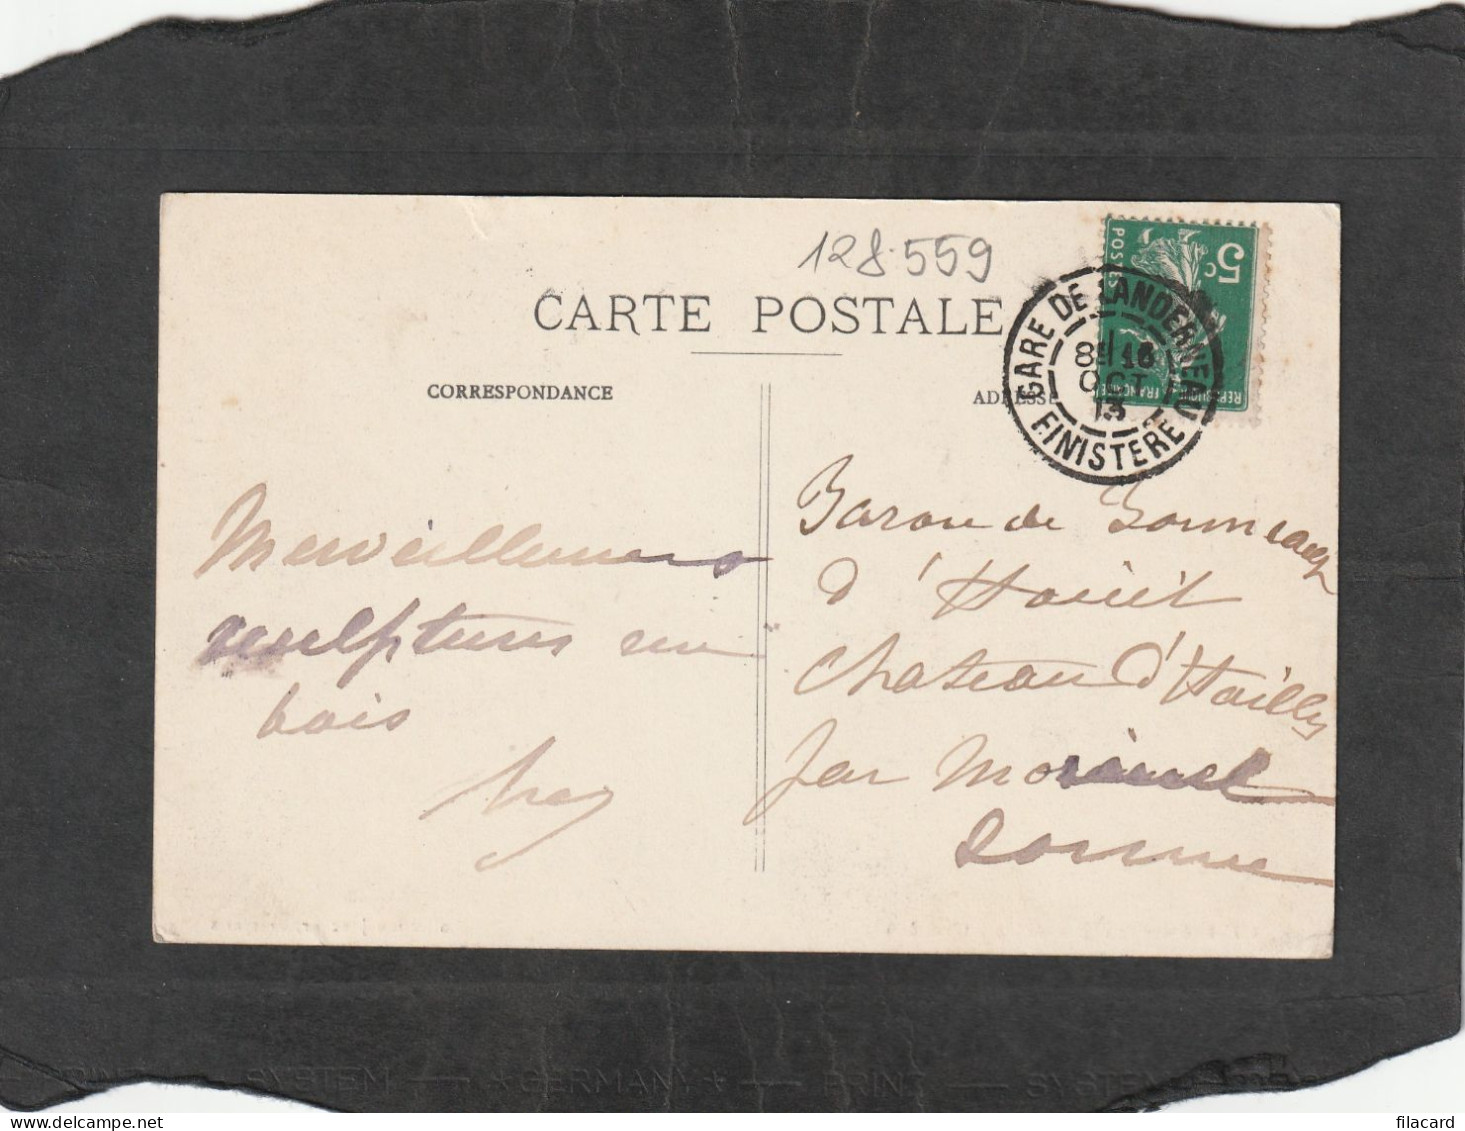 128.559
CARTE POSTALE
CORRESPONDANCE
ADRESSE
POSTES
5c
REPUBLIQUE FRANCAISE
GARE DE LANDERNEAU
8E 16
OCT
13
FINISTERE
Merveilleuses
sculptures en
bois
Baron de
d'
Chateau d'Hailly
par Moreuil
Somme
PRINZ — SYSTEM — * GERMANY * — PRINZ — SYSTEM
filacard